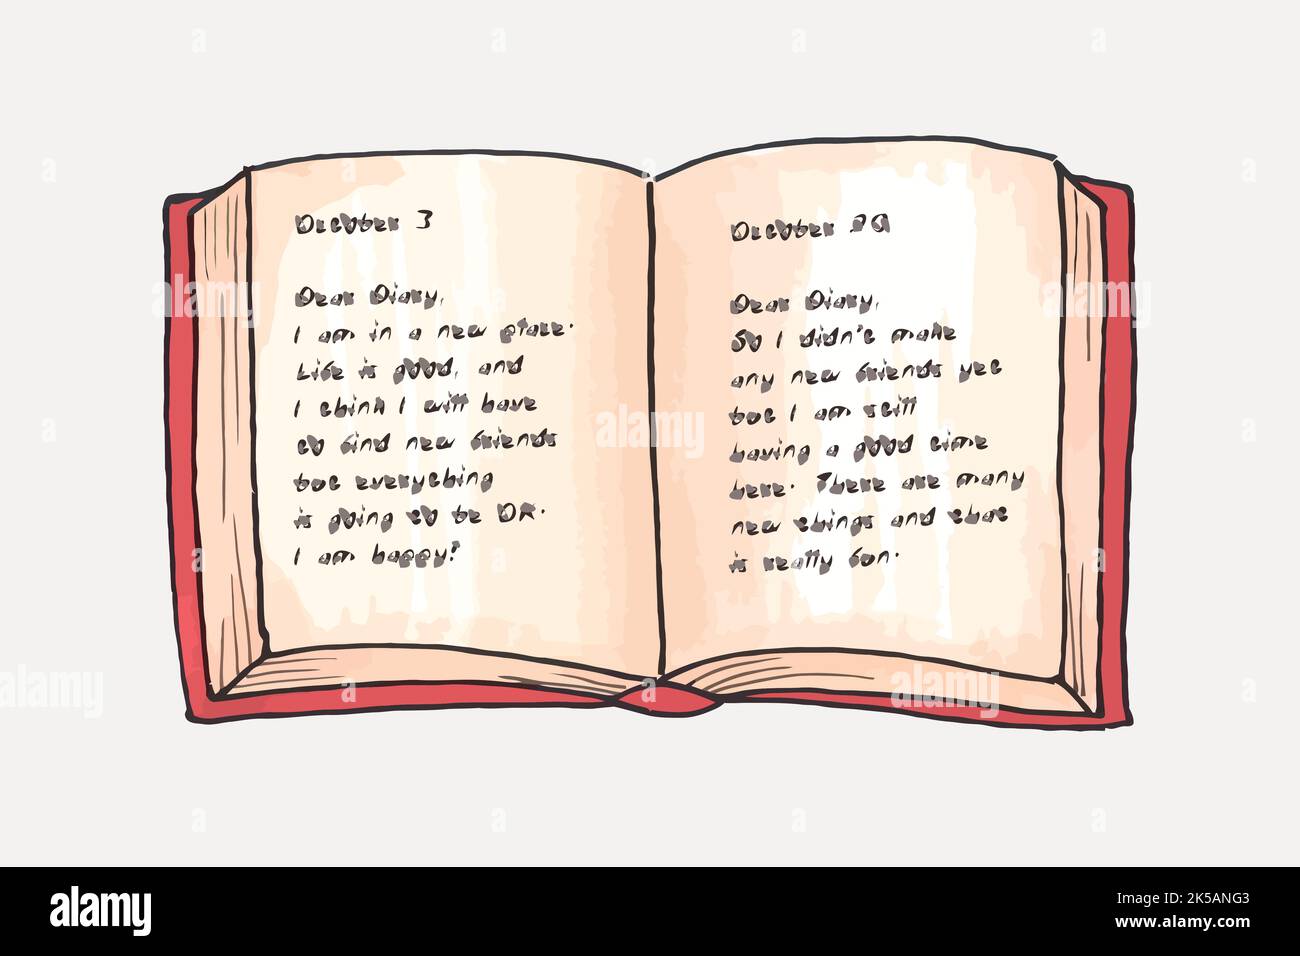 October 3
Dear Diary,
I am in a new place.
Life is good, and
I think I will have
to find new friends
but everything
is going to be OK.
I am happy!
October 29
Dear Diary,
So I didn't make
any new friends yet
but I am still
having a good time
here. There are many
new things and that
is really fun.
alamy
Image ID: 2K5ANG3
www.alamy.com